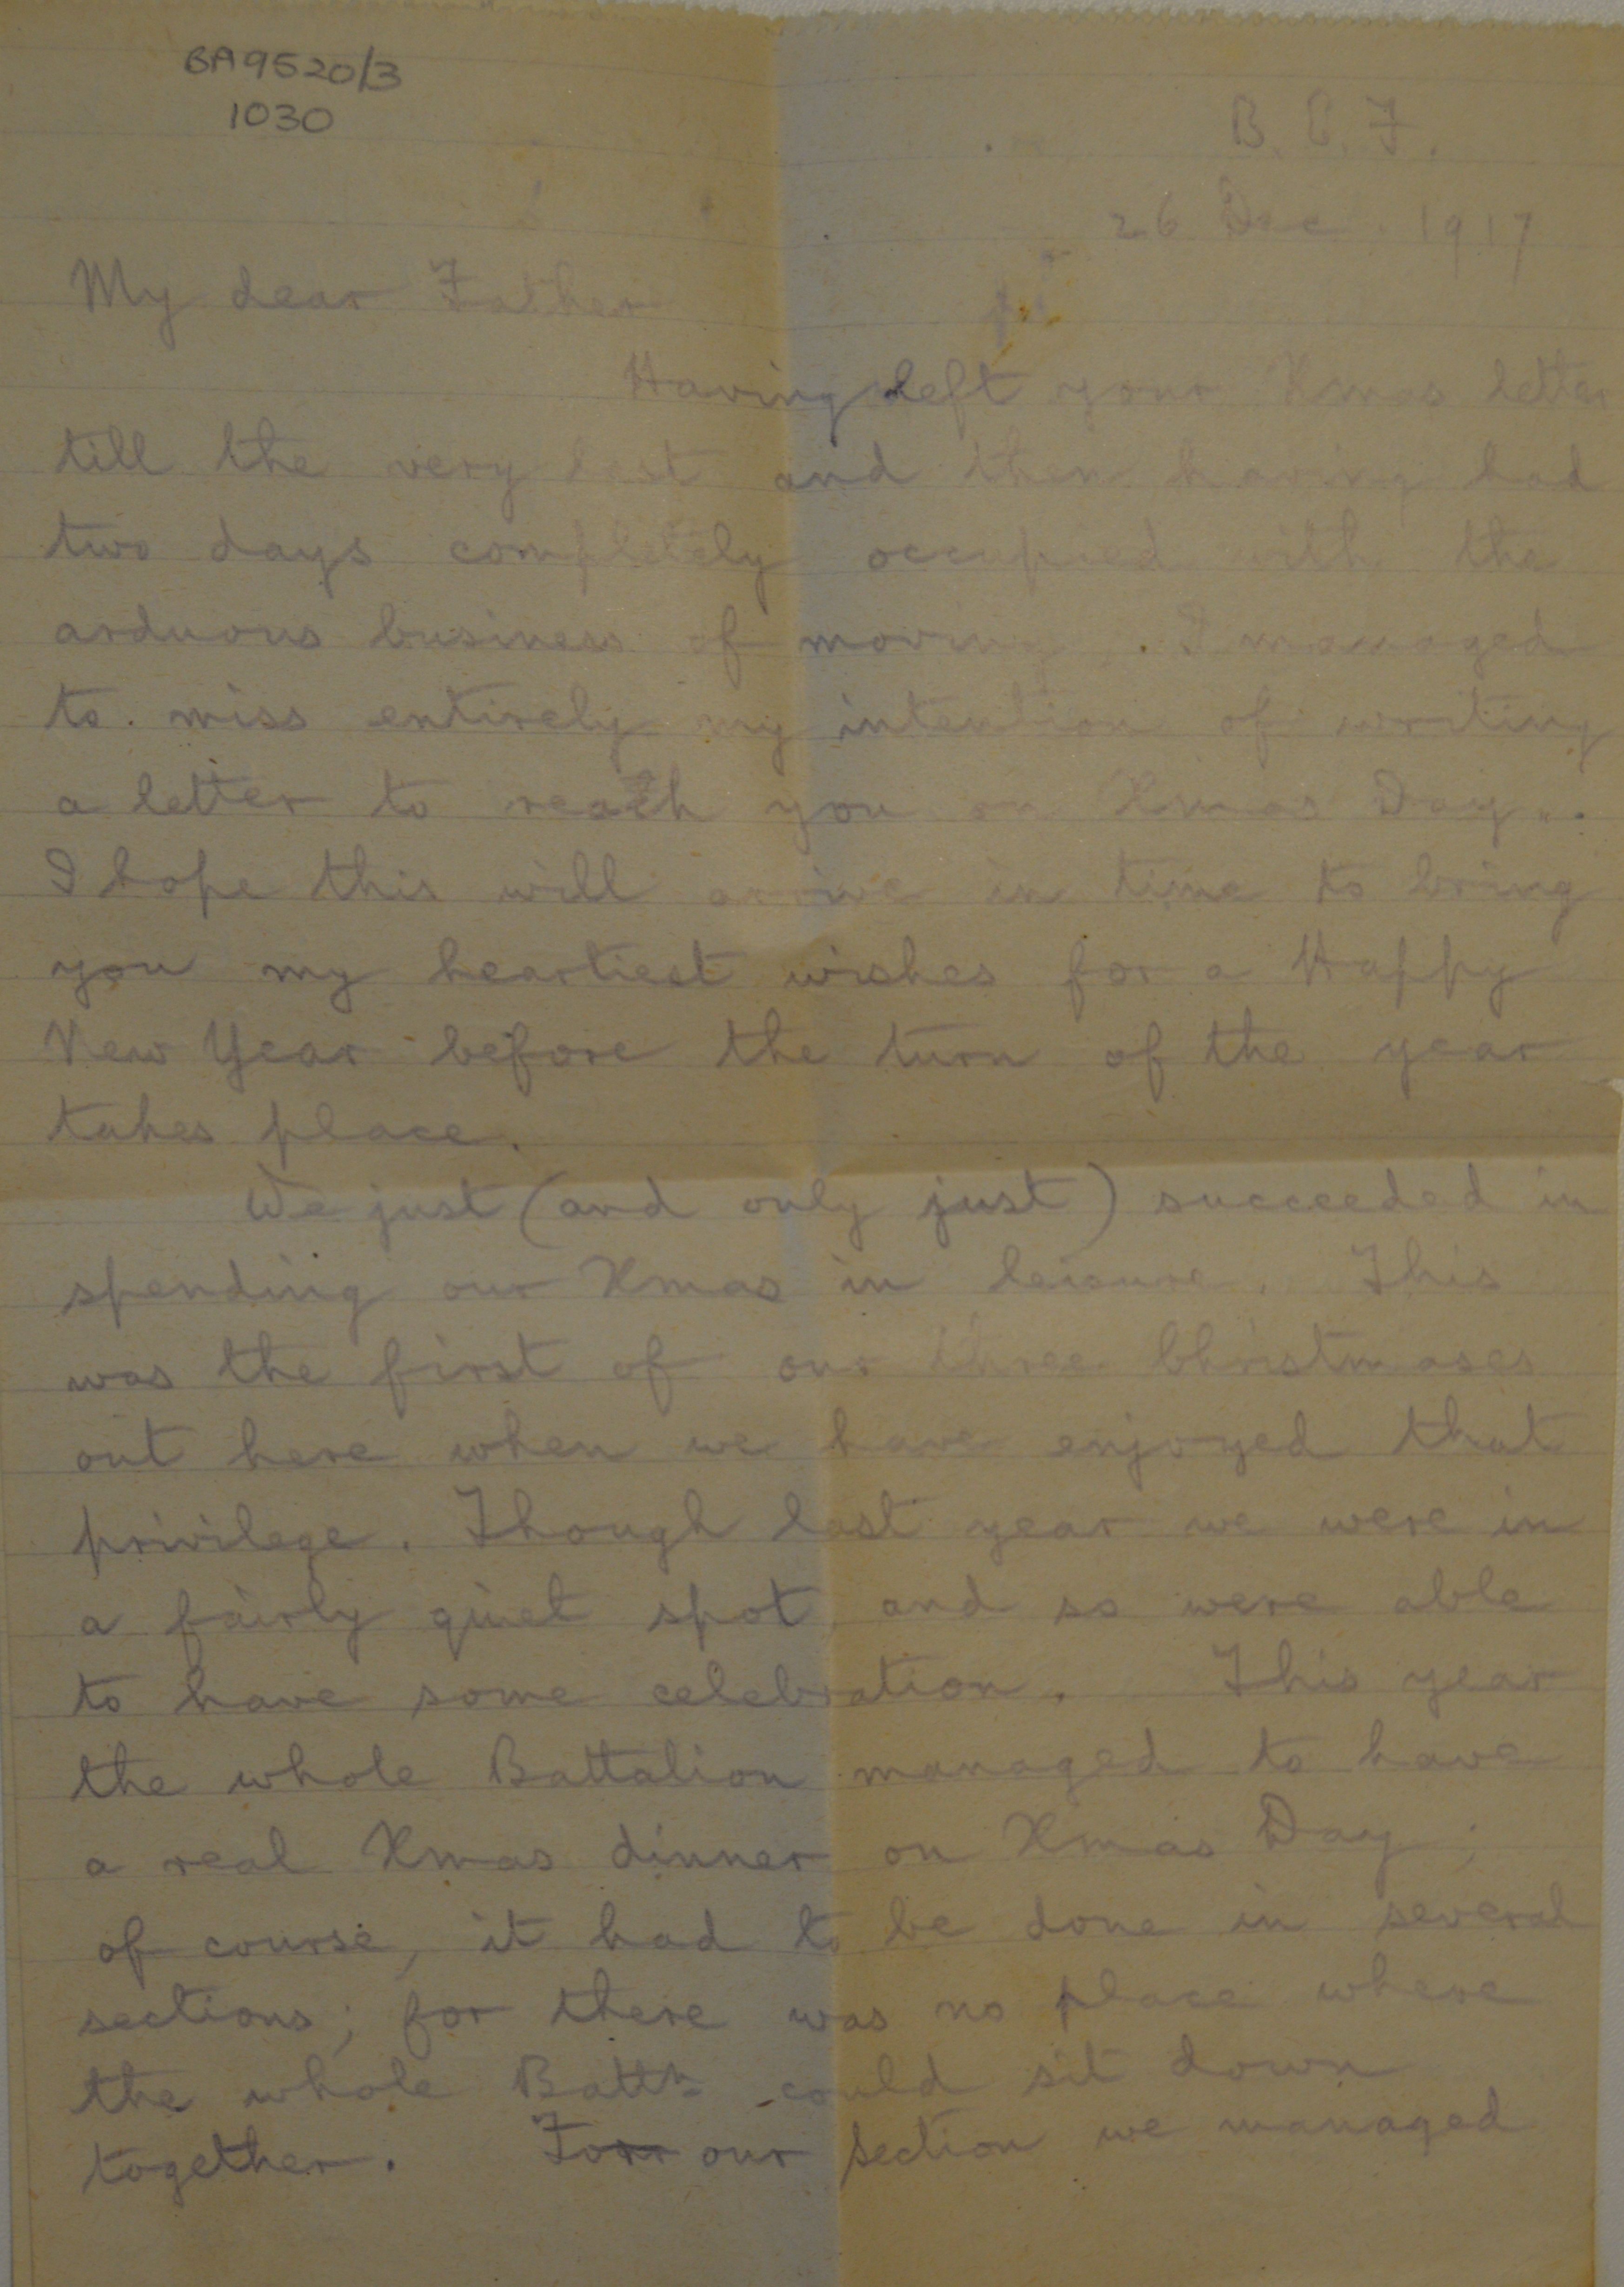 BA9520/3
1030
B. E. F.
26 Dec. 1917
My dear Father
Having left your Xmas letter
till the very last and then having had
two days completely occupied with the
arduous business of moving, I managed
to miss entirely my intention of writing
a letter to reach you on Xmas Day.
I hope this will arrive in time to bring
you my heartiest wishes for a Happy
New Year before the turn of the year
takes place.
We just (and only just) succeeded in
spending our Xmas in leisure. This
was the first of our three Christmases
out here when we have enjoyed that
privilege. Though last year we were in
a fairly quiet spot and so were able
to have some celebration. This year
the whole Battalion managed to have
a real Xmas dinner on Xmas Day;
of course, it had to be done in several
sections; for there was no place where
the whole Battn could sit down
together. For our section we managed